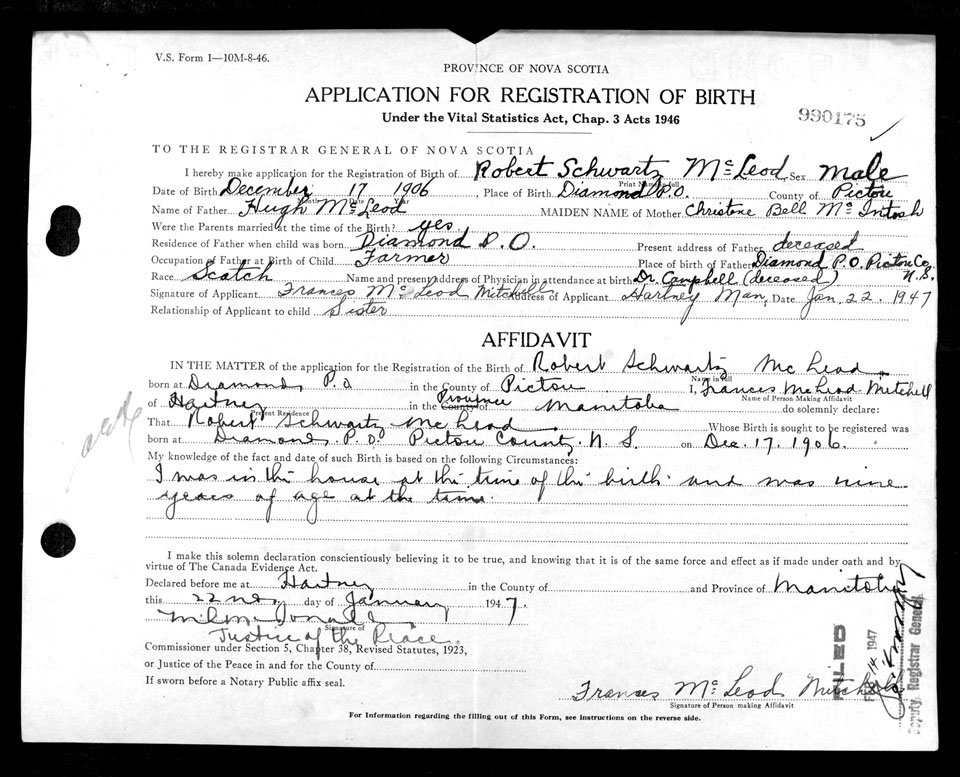 V.S. Form 1—10M-8-46.
PROVINCE OF NOVA SCOTIA
APPLICATION FOR REGISTRATION OF BIRTH
Under the Vital Statistics Act, Chap. 3 Acts 1946
990175
TO THE REGISTRAR GENERAL OF NOVA SCOTIA
I hereby make application for the Registration of Birth of Robert Schwartz McLeod Sex male
Print Name in full
Date of Birth December 17 1906, Place of Birth Diamond P.O. County of Pictou
Month Date Year
Name of Father Hugh McLeod MAIDEN NAME of Mother Christene Bell McIntosh
Were the Parents married at the time of the Birth? yes
Residence of Father when child was born Diamond P.O. Present address of Father deceased
Occupation of Father at Birth of Child Farmer Place of birth of Father Diamond P.O. Pictou Co. N.S.
Race Scotch Name and present address of Physician in attendance at birth Dr. Campbell (deceased)
Signature of Applicant Frances McLeod Mitchell Address of Applicant Hartney Man, Date Jan. 22. 1947
Relationship of Applicant to child Sister
AFFIDAVIT
IN THE MATTER of the application for the Registration of the Birth of Robert Schwartz McLeod
Name in full
born at Diamond P.O in the County of Pictou I, Frances McLeod Mitchell
Name of Person Making Affidavit
of Hartney in the County of Province Manitoba do solemnly declare:
Present Residence
That Robert Schwartz McLeod Whose Birth is sought to be registered was
born at Diamond P.O. Pictou County N.S. on Dec. 17. 1906.
My knowledge of the fact and date of such Birth is based on the following Circumstances:
I was in the house at the time of the birth and was nine
years of age at the time.
I make this solemn declaration conscientiously believing it to be true, and knowing that it is of the same force and effect as if made under oath and by
virtue of The Canada Evidence Act.
Declared before me at Hartney in the County of and Province of Manitoba
this 22nd day of January 1947.
Signature of
Justice of the Peace
Commissioner under Section 5, Chapter 38, Revised Statutes, 1923,
or Justice of the Peace in and for the County of
If sworn before a Notary Public affix seal.
Frances McLeod Mitchell
Signature of Person making Affidavit
For Information regarding the filling out of this Form, see instructions on the reverse side.
FILED
FEB 14 1947
Deputy Registrar General